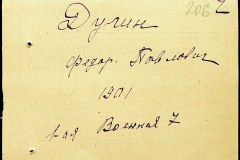 206
2
Дугин
Федор. Павлович
1901
1-ая Военная 7